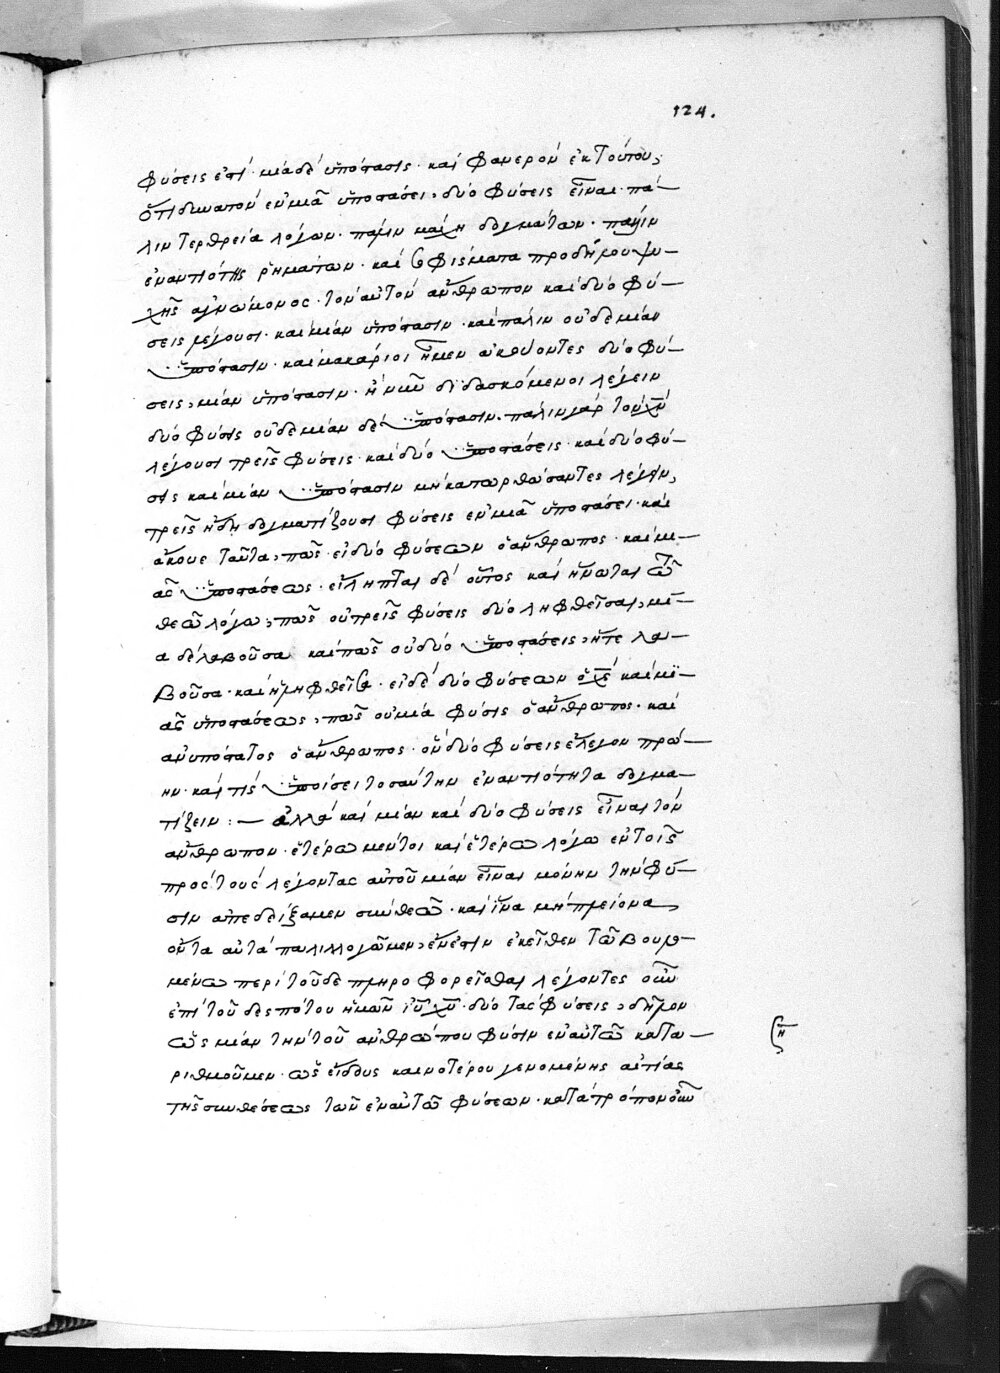 124.
φύσεις ἐστί· μία δὲ ὑπόστασις· καὶ φανερὸν ἐκ τούτου,
ὅτι δυνατὸν ἐν μιᾷ ὑποστάσει, δύο φύσεις εἶναι· πά-
λιν τερθρεία λόγων· πάλιν μάχη δογμάτων· πάλιν
ἐναντιότης ῥημάτων· καὶ σοφίσματα προδήμου ψυ-
χῆς ἀγνώμονος· τὸν αὐτὸν ἄνθρωπον καὶ δύο φύ-
σεις λέγουσι· καὶ μίαν ὑπόστασιν· καὶ πάλιν οὐδὲ μίαν
ὑπόστασιν· καὶ μακάριοι ἦμεν ἀκούοντες δύο φύ-
σεις, μίαν ὑπόστασιν· ἢ νῦν διδασκόμενοι λέγειν
δύο φύσεις οὐδὲ μίαν δὲ ὑπόστασιν· πάλιν γὰρ τὸν χν
λέγουσι τρεῖς φύσεις· καὶ δύο ὑποστάσεις· καὶ δύο φύ-
σεις καὶ μίαν ὑπόστασιν μὴ κατωρθώσαντες λέγειν,
τρεῖς ἤδη δογματίζουσι φύσεις ἐν μιᾷ ὑποστάσει· καὶ
ἄκουε ταῦτα, πῶς· εἰ δύο φύσεων ὁ ἄνθρωπος· καὶ μι-
ᾶς ὑποστάσεως· εἴληπται δὲ οὗτος καὶ ἥνωται τῶ
θεῶ λόγω, πῶς οὐ τρεῖς φύσεις δύο ληφθεῖσαι, μί-
α δὲ λαβοῦσα καὶ πῶς οὐ δύο ὑποστάσεις, ἥτε λα-
βοῦσα· καὶ ἡ ληφθεῖσα· εἰ δὲ δύο φύσεων ὁ χς καὶ μι-
ᾶς ὑποστάσεως, πῶς οὐ μία φύσις ὁ ἄνθρωπος· καὶ
ἀνυπόστατος ὁ ἄνθρωπος· ὃν δύο φύσεις ἔλεγον πρώ-
ην· καὶ τίς ὑποίσει τοσαύτην ἐναντιότητα δογμα-
τίζειν :— ἀλλὰ καὶ μίαν καὶ δύο φύσεις εἶναι τὸν
ἄνθρωπον· ἑτέρω μέντοι καὶ ἑτέρω λόγω ἐν τοῖς
πρὸς τοὺς λέγοντας αὐτοῦ μίαν εἶναι μόνην τὴν φύ-
σιν ἀπεδείξαμεν σὺν θεῶ· καὶ ἵνα μὴ πλείονα,
ὄντα αὐτὰ παλιλλογῶμεν, ἔνεστιν ἐκεῖθεν τῶ βουλο-
μένω περὶ τοῦδε πληροφορεῖσθαι λέγοντες οὖν
ἐπὶ τοῦ δεσπότου ἡμῶν ιυ χυ· δύο τὰς φύσεις, δῆλον
ὡς μίαν τὴν τοῦ ἀνθρώπου φύσιν ἐν αὐτῶ κατα-
ριθμοῦμεν· ὡς εἴδους καινοτέρου γενομένης αἰτίας
τῆς συνθέσεως τῶν ἐν αὐτῶ φύσεων· κατὰ τρόπον οὖν